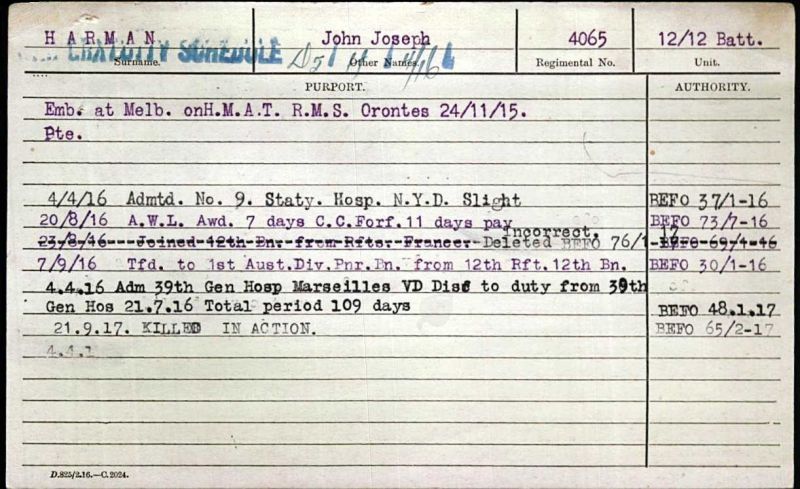 HARMAN John Joseph 4065 12/12 Batt.
GRATUITY SCHEDULE
Surname. Other Names. Regimental No. Unit.
PURPORT. AUTHORITY.
Emb. at Melb. onH.M.A.T. R.M.S. Orontes 24/11/15.
Pte.
4/4/16 Admtd. No. 9. Staty. Hosp. N.Y.D. Slight BEFO 37/1-16
20/8/16 A.W.L. Awd. 7 days C.C.Forf.11 days pay BEFO 73/7-16
Incorrect.
23/8/16 Joined 12th Bn. from Rfts. France. Deleted BEFO 76/1-17 BEFO 69/4-16
7/9/16 Tfd. to 1st Aust.Div.Pnr.Bn. from 12th Rft.12th Bn. BEFO 30/1-16
4.4.16 Adm 39th Gen Hosp Marseilles VD Disc to duty from 39th
Gen Hos 21.7.16 Total period 109 days BEFO 48.1.17
21.9.17. KILLED IN ACTION. BEFO 65/2-17
4.4.1
D.825/2.16.—C.2024.